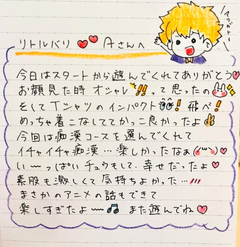 リトルパリ❤❤Aさんへ
今日はスタートから遊んでくれてありがとう
お顔見た時オシャレ!!って思ったの
そしてTシャツのインパクト!!飛べ!
めっちゃ着こなしててかっこ良かったよ
今回は痴漢コースを選んでくれて
イチャイチャ痴漢…楽しかったなぁ
い〜っぱいチュウもして、幸せだったよ❤
素股も激しくて気持ちよかった…
まさかのアニメの話もできて
楽しすぎたよー♪また遊んでね❤